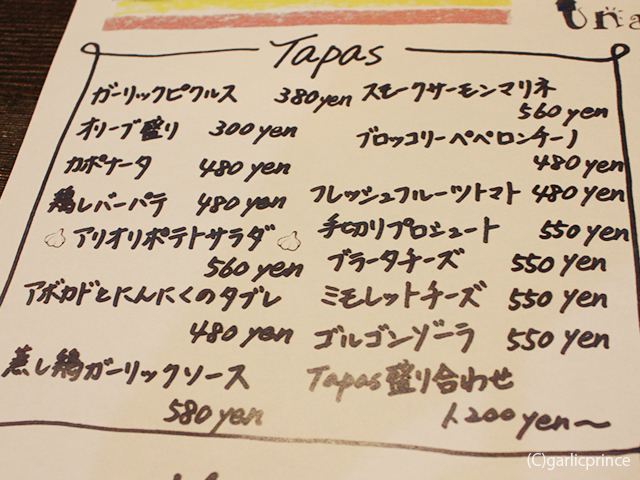 una
Tapas
ガーリックピクルス 380yen
オリーブ盛り 300yen
カポナータ 480yen
鶏レバーパテ 480yen
アリオリポテトサラダ
560yen
アボカドとにんにくのタブレ
480yen
蒸し鶏ガーリックソース
580yen
スモークサーモンマリネ
560yen
ブロッコリーペペロンチーノ
480yen
フレッシュフルーツトマト 480yen
手切りプロシュート 550yen
ブラータチーズ 550yen
ミモレットチーズ 550yen
ゴルゴンゾーラ 550yen
Tapas盛り合わせ
1,200yen〜
(C)garlicprince